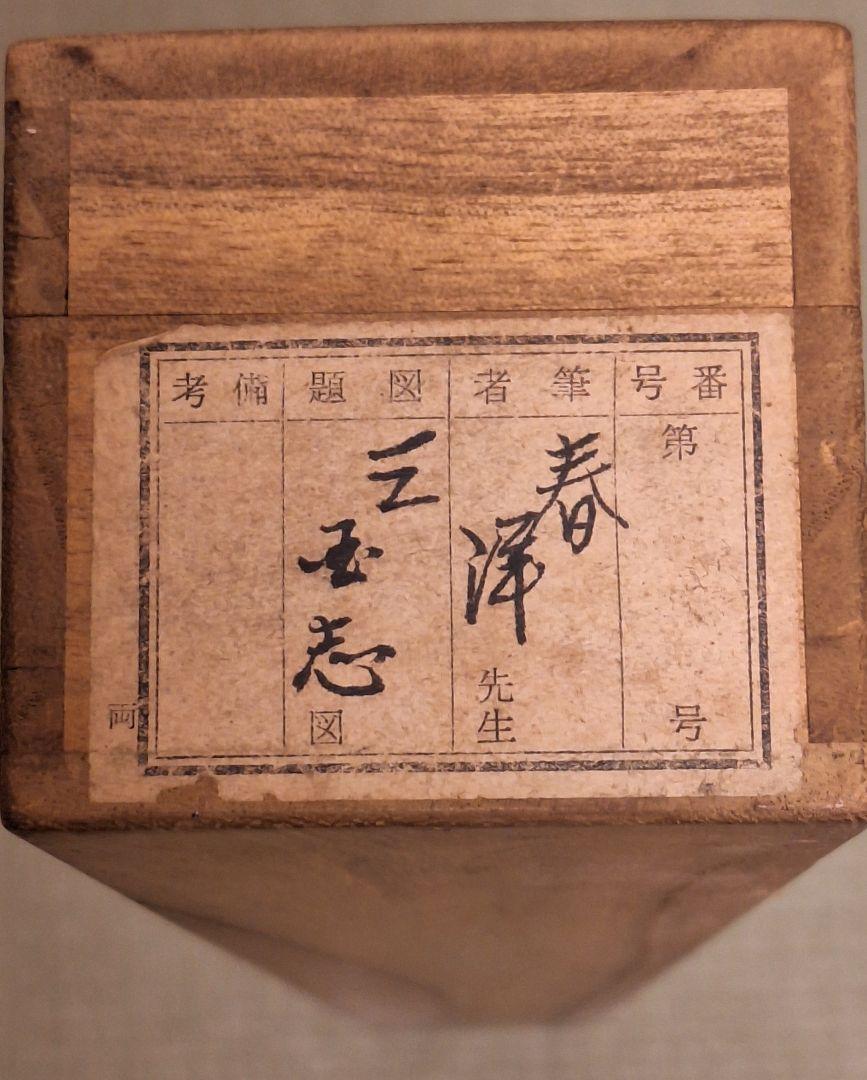 番号
第 号
筆者
春洋先生
図題
三国志図
備考
両